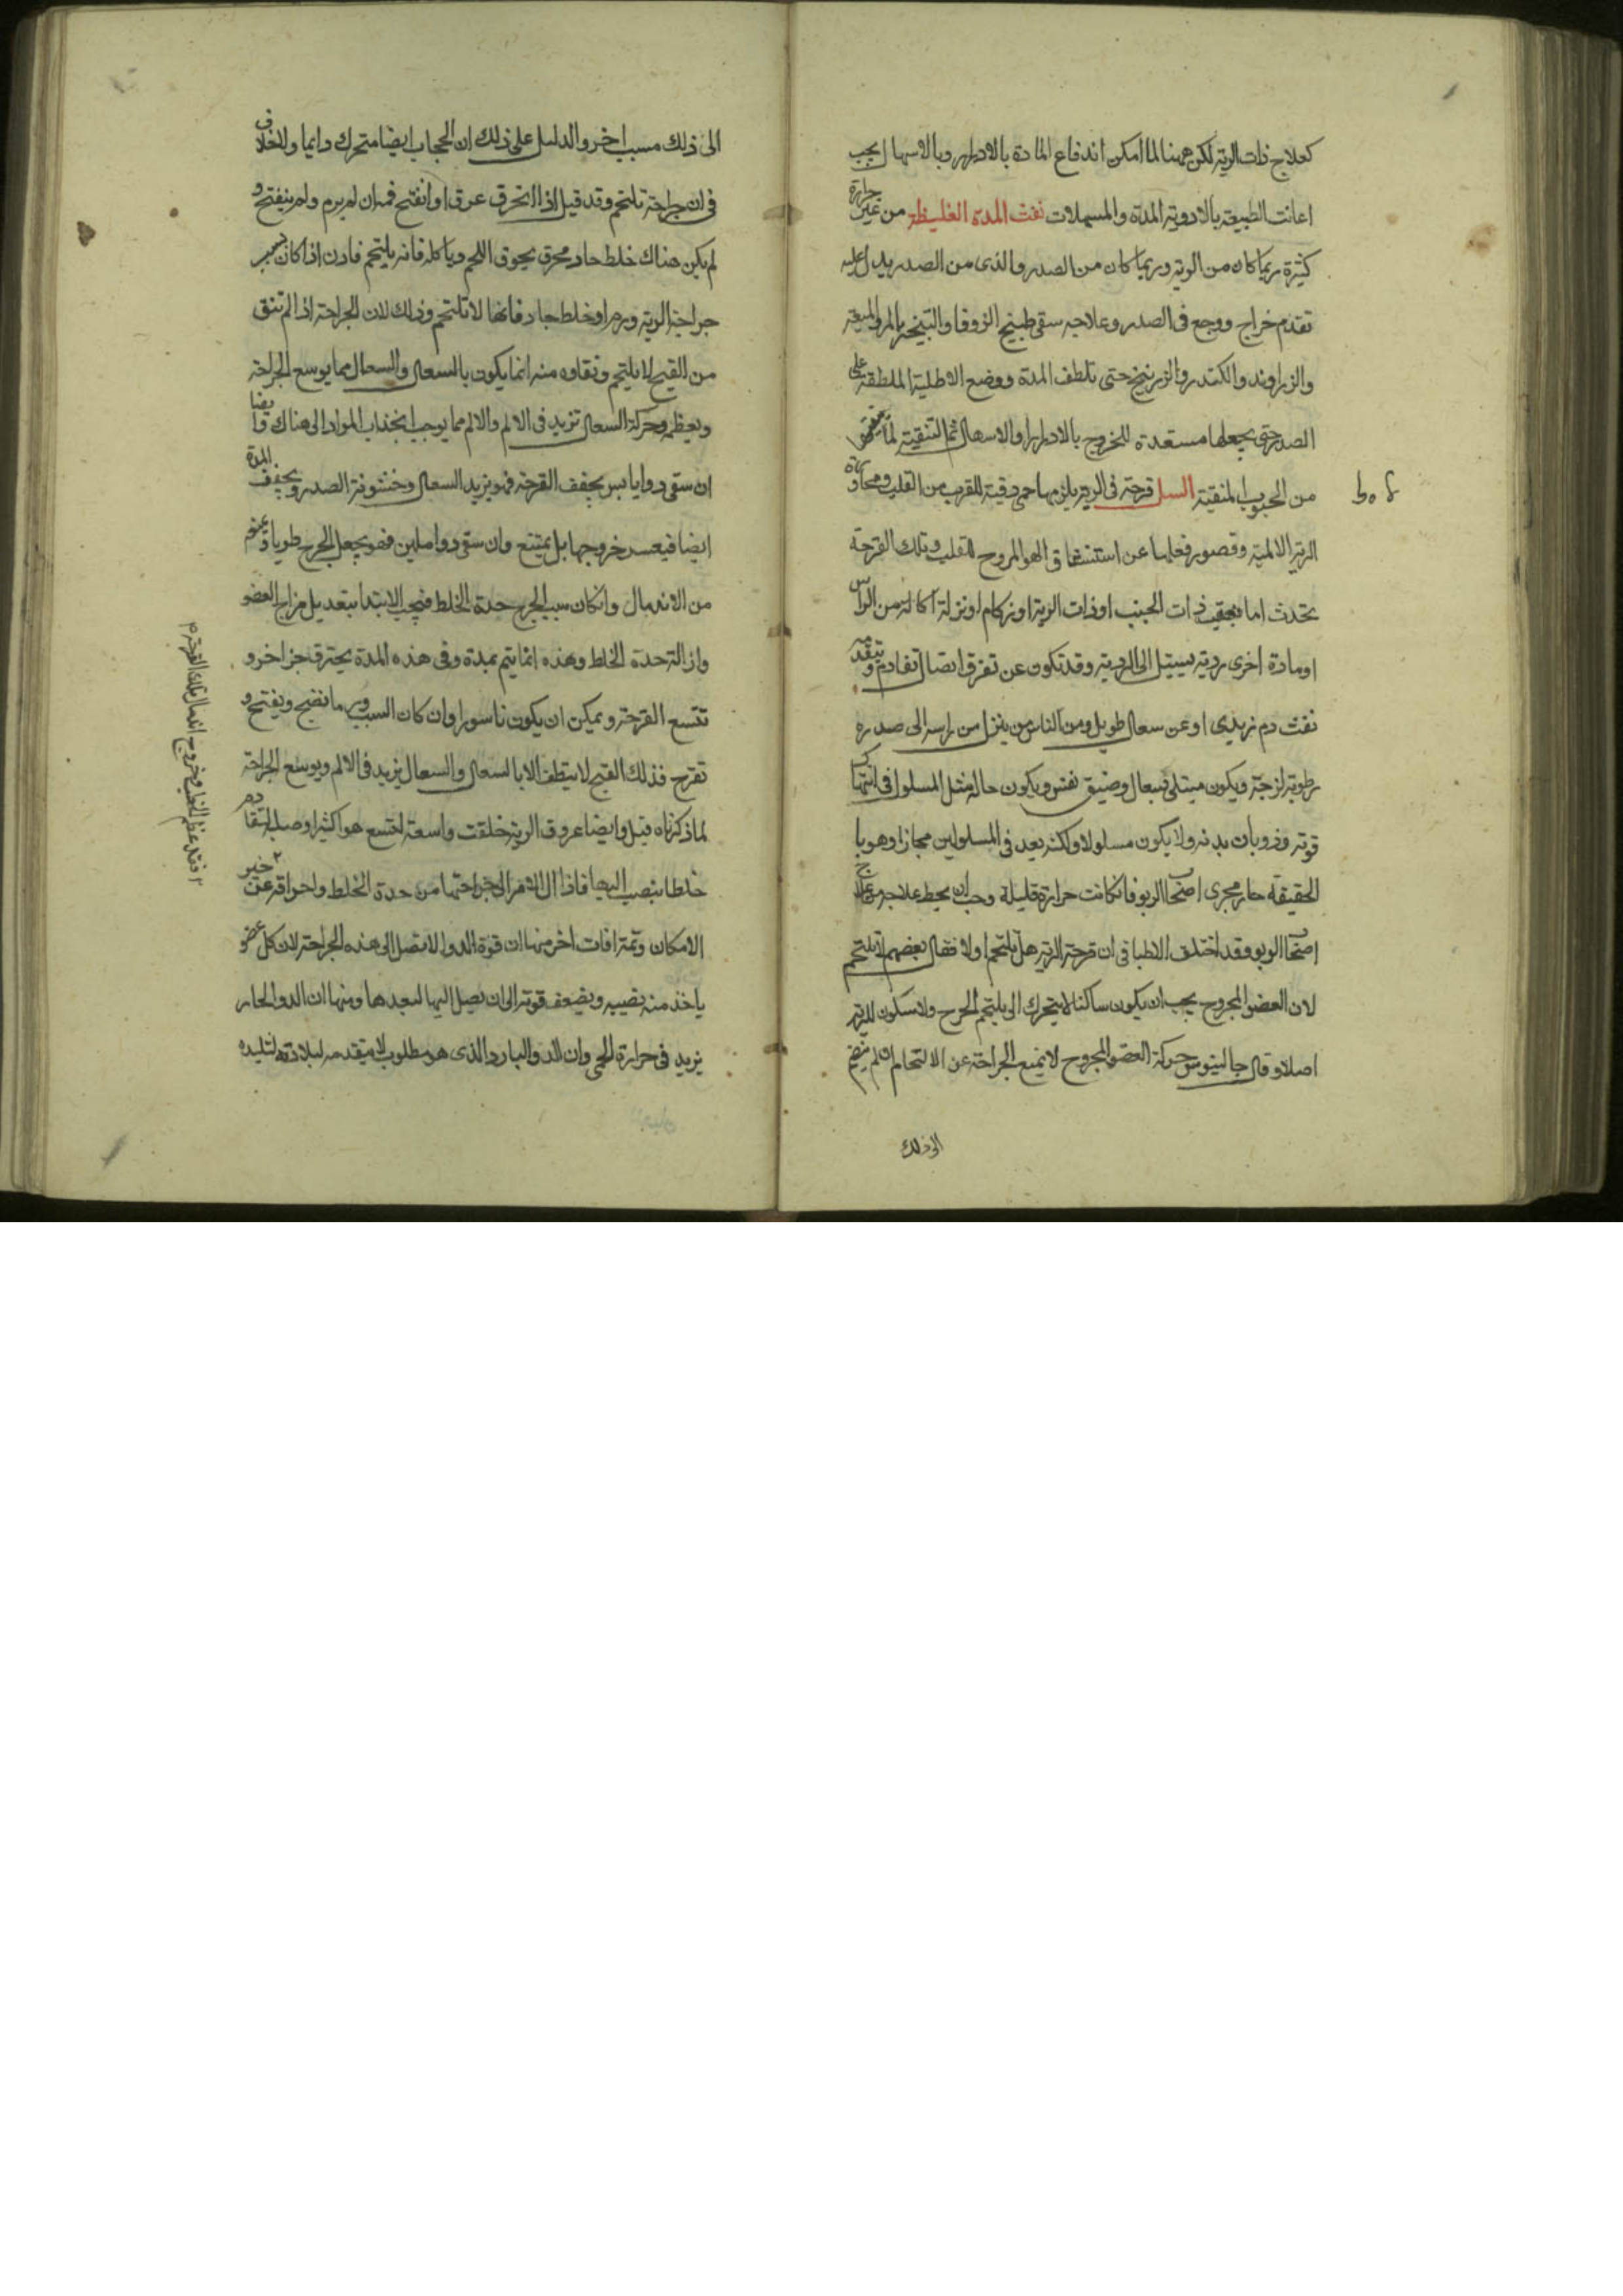 كعلاج ذات الرية لكن ههنا لما امكن اندفاع المادة بالادرار وبالاسهال يجب
اعانت الطبيعة بالادوية المدة والمسهلات نفث المدة الغليظة من غير حرارة
كثيرة ربما كان من الرية وربما كان من الصدر والذى من الصدر يدل عليه
تقدم خراج ووجع فى الصدر وعلاجه سقى طبيخ الزوفا والتبخير بالمر والميعة
والزراوند والكندر والزرنيخ حتى تلطف المدة ووضع الاطلية الملطفة على
الصدر حتى يجعلها مستعدة للخروج بالادرار والاسهال ثم التنقية
من الحبوب المنقية السل قرحة فى الرية يلزمها حمى دقية للقرب من القلب ومجاورة
الرية الالمية وقصور فعلها عن استنشاق الهوا المروح للقلب وتلك القرحة
تحدث اما بعقيب ذات الجنب او ذات الرية او زكام او نزلة اكالة من الراس
او مادة اخرى ردية تسيل الى الرية وقد تكون عن تفرق اتصال تقادم وتقدمه
نفث دم زبدى او عن سعال طويل ومن الناس من ينزل من راسه الى صدره
رطوبة لزجة ويكون مبتلى بسعال وضيق نفس ويكون حاله مثل المسلول فى انتهاك
قوته وذوبان بدنه ولا يكون مسلولا ولكنه يعد فى المسلولين مجازا وهو با
لحقيقة جار مجرى اصحاب الربو فان كانت حرارة قليلة وجب ان يخلط علاجه من علاج
اصحاب الربو وقد اختلف الاطبا فى ان قرحة الرية هل تلتحم اولا فقال بعضهم لا تلتحم
لان العضو المجروح يجب ان يكون ساكنا لا يتحرك الى يلتحم الجرح ولا سكون للرية
اصلا وقال جالينوس حركة العضو المجروح لا يمنع الجراحة عن الالتحام ان لم ينضم
الى ذلك
الى ذلك مسبب اخر والدليل على ذلك ان الحجاب ايضا متحرك دايما ولا خلاف
فى ان جراحته تلتحم وقد قيل اذا انخرق عرق او انفتح فمه ان لم يرم ولم ينفتح و
لم يكن هناك خلط حاد محرق يحرق اللحم وياكله فانه يلتحم فاذن اذا كان سبب
جراحة الرية ورم او خلط حاد فانها لا تلتحم وذلك لان الجراحة اذا لم تنق
من القيح لا يلتحم ونقاوه منه انما يكون بالسعال والسعال مما يوسع الجراحة
ويعظم وحركة السعال تزيد فى الالم والالم مما يوجب انجذاب المواد الى هناك وايضا
ان سقى دوا يابس يجفف القرحة فهو يزيد السعال وخشونة الصدر ويجفف المدة
ايضا فيعسر خروجها بل يمتنع وان سقى دوا ملين فهو يجعل الجرح طريا ويمنع
من الاندمال وان كان سبب الجرح حدة الخلط فيجب الابتدا بتعديل مزاج العضو
وازالة حدة الخلط وهذه انما يتم بمدة وفى هذه المدة يحترق جزء اخر و
تتسع القرحة ويمكن ان يكون ناسورا وان كان السبب ورما نضج ويفتح و
تقرح فذلك القيح لا يتنظف الا بالسعال والسعال يزيد فى الالم ويوسع الجراحة
لما ذكرناه قبل وايضا عروق الرية خلقت واسعة لتسع هوا كثيرا وصلبة
خلطا ينصب اليها فاذا آل الامر الى جراحتها من حدة الخلط واحراقه
الامكان وثمة افات اخر منها ان قوة الدوا لا تصل الى هذه الجراحة لان كل عضو
ياخذ منه نصيبه ويضعف قوته الى ان يصل اليها لبعدها ومنها ان الدوا الحار
يزيد فى حرارة الحمى وان الدوا البارد الذى هو مطلوب لا يتقدمه لبلادته